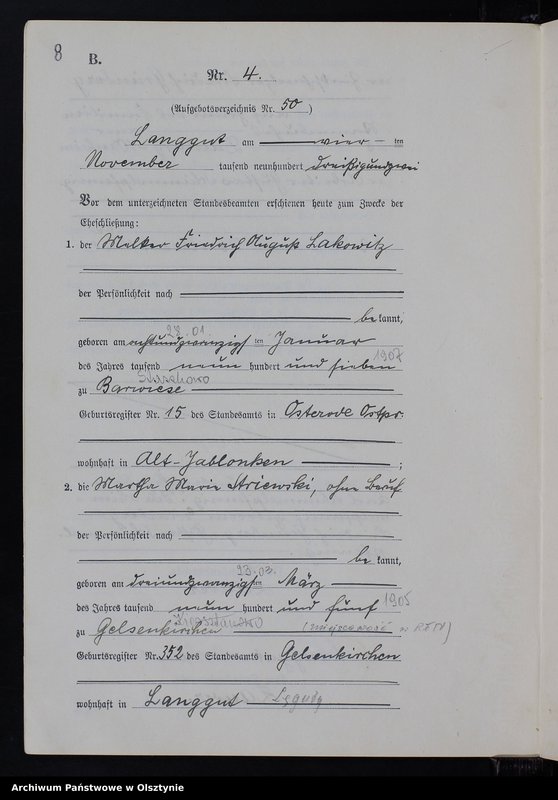 8
B.
Nr. 4.
(Aufgebotsverzeichnis Nr. 50)
Langgut am vier ten
November tausend neunhundert dreißigundzwei
Vor dem unterzeichneten Standesbeamten erschienen heute zum Zwecke der
Eheschließung:
1. der Melker Friedrich August Lakowitz
der Persönlichkeit nach
be kannt,
28.01.
geboren am achtundzwanzigs ten Januar
des Jahres tausend neun hundert und sieben 1907
zu Barwiese
Geburtsregister Nr. 15 des Standesamts in Osterode Ostpr.
wohnhaft in Alt-Jablonken ;
2. die Martha Marie, ohne Beruf
der Persönlichkeit nach
be kannt,
23.03.
geboren am dreiundzwanzigsten März
des Jahres tausend neun hundert und fünf 1905
zu Gelsenkirchen (miejscowość w RFN)
Geburtsregister Nr. 352 des Standesamts in Gelsenkirchen
wohnhaft in Langgut
Archiwum Państwowe w Olsztynie